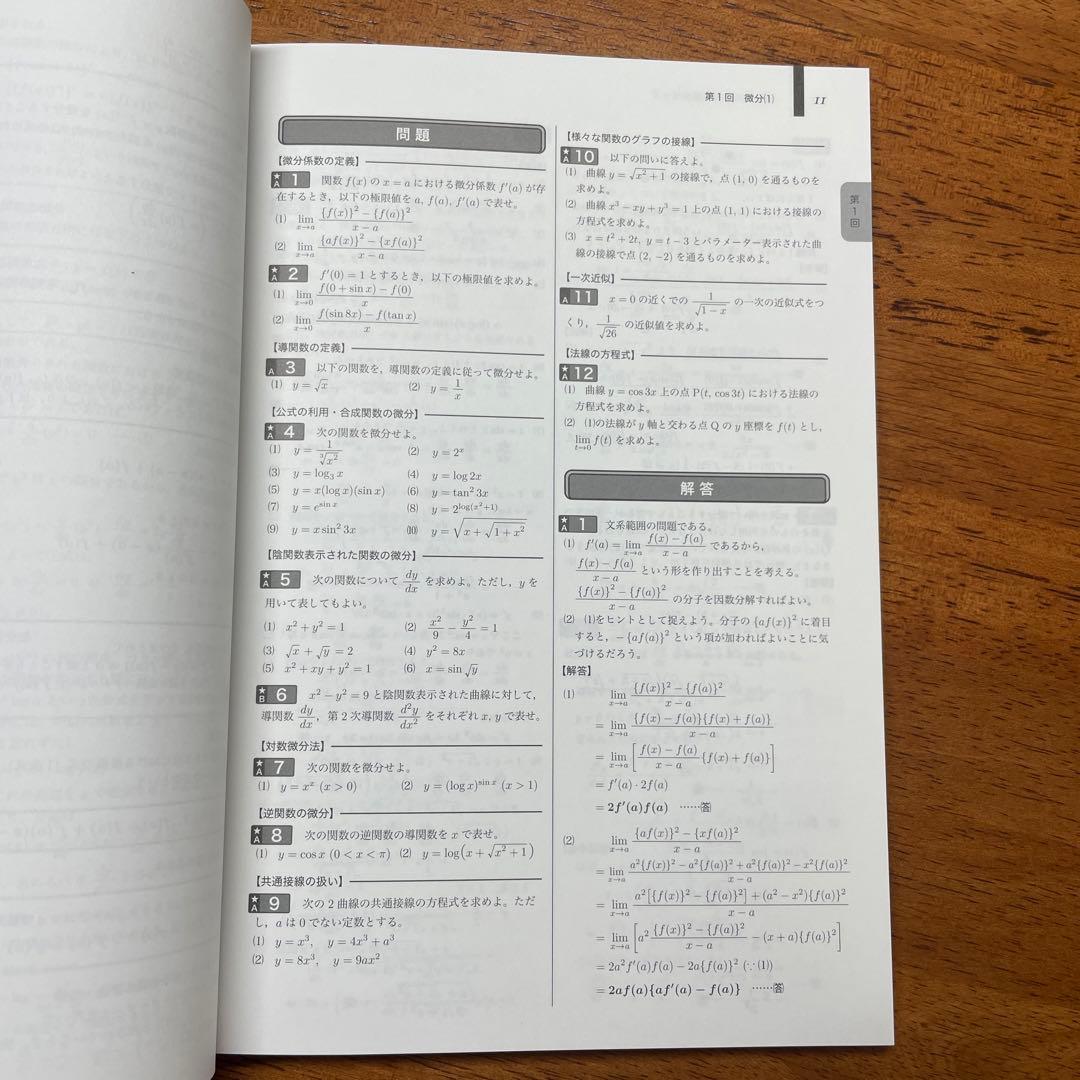 第1回 微分(1) 11
問題
【微分係数の定義】
★A 1 関数 f(x) の x = a における微分係数 f′(a) が存
在するとき，以下の極限値を a, f(a), f′(a) で表せ。
(1) lim_{x→a} ({f(x)}² − {f(a)}²)/(x − a)
(2) lim_{x→a} ({af(x)}² − {xf(a)}²)/(x − a)
★A 2 f′(0) = 1 とするとき，以下の極限値を求めよ。
(1) lim_{x→0} (f(0 + sin x) − f(0))/x
(2) lim_{x→0} (f(sin 8x) − f(tan x))/x
【導関数の定義】
A 3 以下の関数を，導関数の定義に従って微分せよ。
(1) y = √x (2) y = 1/x
【公式の利用・合成関数の微分】
★A 4 次の関数を微分せよ。
(1) y = 1/∛(x²) (2) y = 2ˣ
(3) y = log₃ x (4) y = log 2x
(5) y = x(log x)(sin x) (6) y = tan² 3x
(7) y = e^{sin x} (8) y = 2^{log(x²+1)}
(9) y = x sin² 3x (10) y = √(x + √(1 + x²))
【陰関数表示された関数の微分】
★A 5 次の関数について dy/dx を求めよ。ただし，y を
用いて表してもよい。
(1) x² + y² = 1 (2) x²/9 − y²/4 = 1
(3) √x + √y = 2 (4) y² = 8x
(5) x² + xy + y² = 1 (6) x = sin √y
★B 6 x² − y² = 9 と陰関数表示された曲線に対して，
導関数 dy/dx，第2次導関数 d²y/dx² をそれぞれ x, y で表せ。
【対数微分法】
★A 7 次の関数を微分せよ。
(1) y = xˣ (x > 0) (2) y = (log x)^{sin x} (x > 1)
【逆関数の微分】
★A 8 次の関数の逆関数の導関数を x で表せ。
(1) y = cos x (0 < x < π) (2) y = log(x + √(x² + 1))
【共通接線の扱い】
★A 9 次の2曲線の共通接線の方程式を求めよ。ただ
し，a は 0 でない定数とする。
(1) y = x³, y = 4x³ + a³
(2) y = 8x³, y = 9ax²
【様々な関数のグラフの接線】
★A 10 以下の問いに答えよ。
(1) 曲線 y = √(x² + 1) の接線で，点 (1, 0) を通るものを
求めよ。
(2) 曲線 x³ − xy + y³ = 1 上の点 (1, 1) における接線の
方程式を求めよ。
(3) x = t² + 2t, y = t − 3 とパラメーター表示された曲
線の接線で点 (2, −2) を通るものを求めよ。
第1回
【一次近似】
A 11 x = 0 の近くでの 1/√(1 − x) の一次の近似式をつ
くり，1/√26 の近似値を求めよ。
【法線の方程式】
★A 12
(1) 曲線 y = cos 3x 上の点 P(t, cos 3t) における法線の
方程式を求めよ。
(2) (1)の法線が y 軸と交わる点 Q の y 座標を f(t) とし，
lim_{t→0} f(t) を求めよ。
解答
★A 1 文系範囲の問題である。
(1) f′(a) = lim_{x→a} (f(x) − f(a))/(x − a) であるから，
(f(x) − f(a))/(x − a) という形を作り出すことを考える。
({f(x)}² − {f(a)}²)/(x − a) の分子を因数分解すればよい。
(2) (1)をヒントとして捉えよう。分子の {af(x)}² に着目
すると，−{af(a)}² という項が加わればよいことに気
づけるだろう。
【解答】
(1) lim_{x→a} ({f(x)}² − {f(a)}²)/(x − a)
= lim_{x→a} ({f(x) − f(a)}{f(x) + f(a)})/(x − a)
= lim_{x→a} [(f(x) − f(a))/(x − a) {f(x) + f(a)}]
= f′(a) · 2f(a)
= 2f′(a)f(a) ……答
(2) lim_{x→a} ({af(x)}² − {xf(a)}²)/(x − a)
= lim_{x→a} (a²{f(x)}² − a²{f(a)}² + a²{f(a)}² − x²{f(a)}²)/(x − a)
= lim_{x→a} (a²[{f(x)}² − {f(a)}²] + (a² − x²){f(a)}²)/(x − a)
= lim_{x→a} [a² ({f(x)}² − {f(a)}²)/(x − a) − (x + a){f(a)}²]
= 2a²f′(a)f(a) − 2a{f(a)}² (∵(1))
= 2af(a){af′(a) − f(a)} ……答